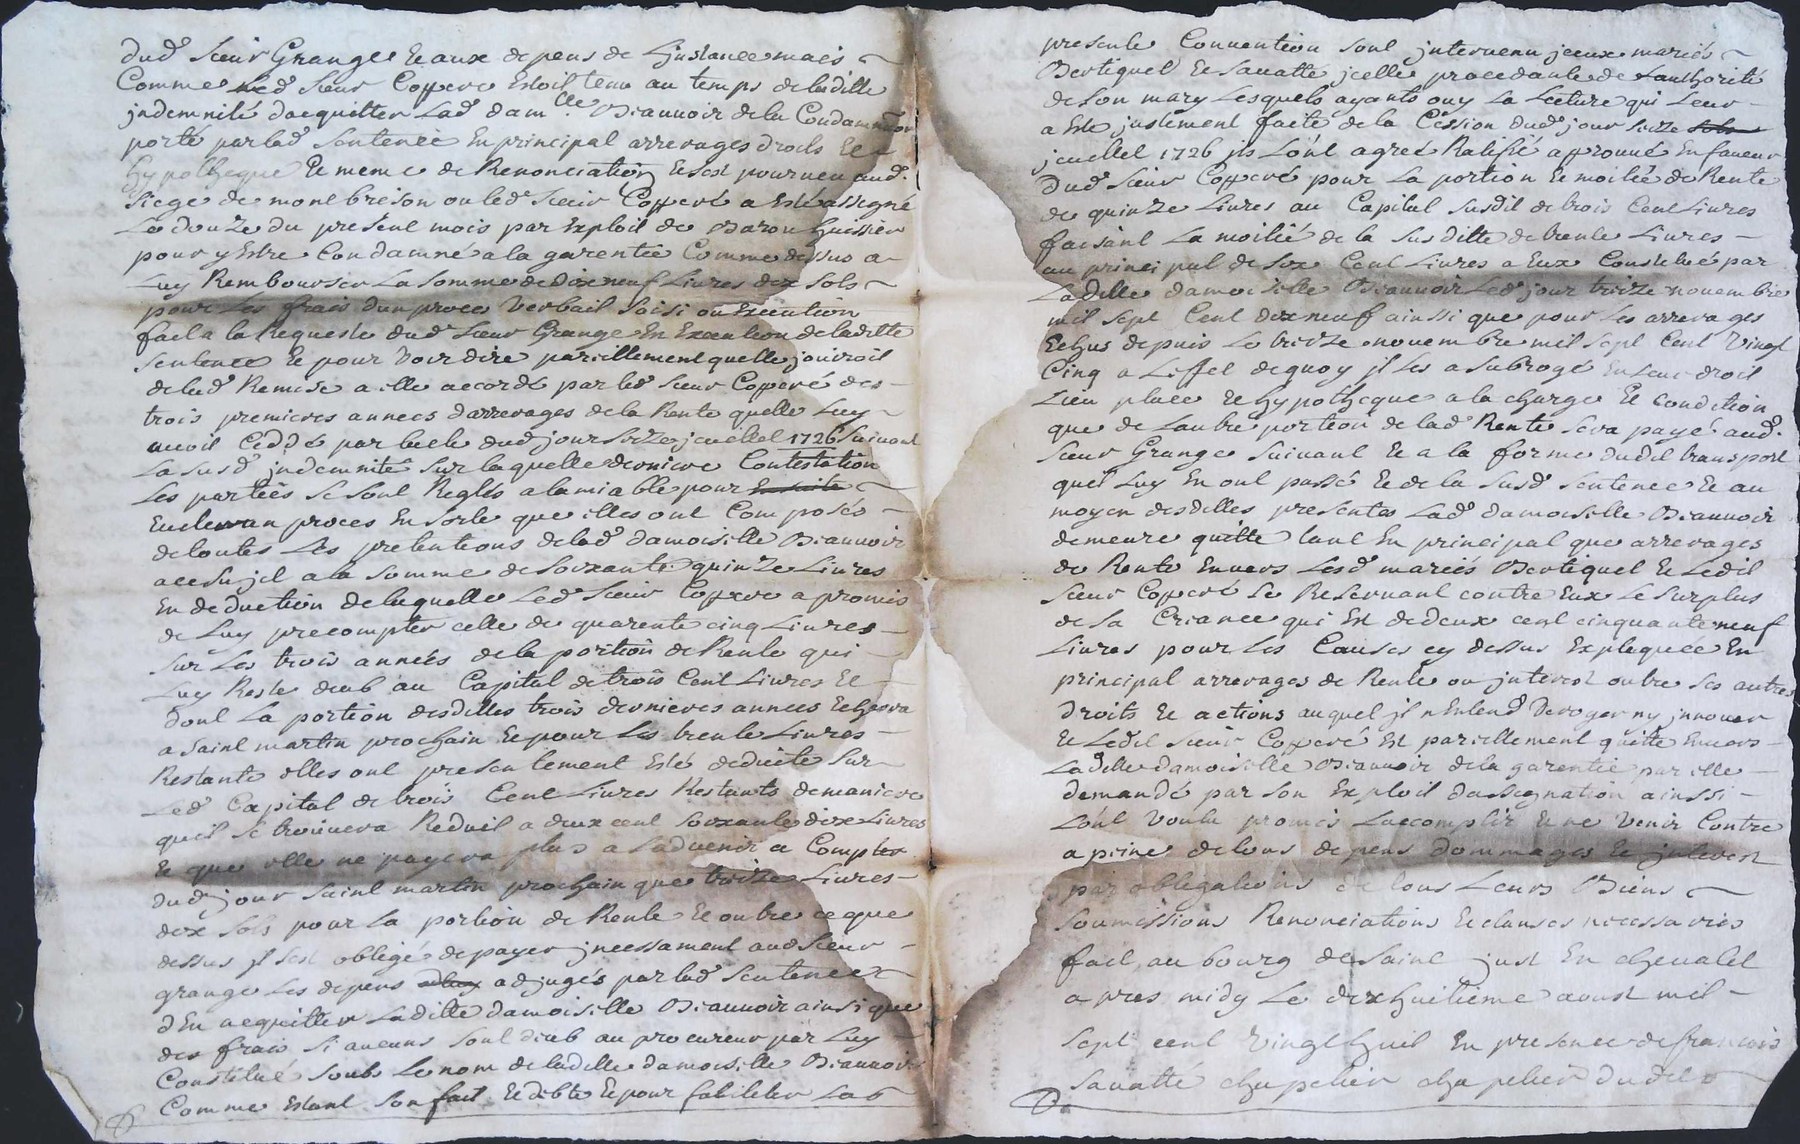 dud. Sieur Grange Et aux depens de Linstance mais
Comme led. Sieur Copperé Estoit tenu au temps de laditte
jndemnité dacquitter Lad. dam.lle Beauvoir de la Condamnaon
porté par lad. Sentence En principal arrerages droits Et
hypotheque Et meme de Renonciation Et sest pourveu aud.
Siege de montbrison ou led. Sieur Copperé a Esté assigné
Le douze du present mois par Exploit de Baron huissier
pour y Estre Condamné a la garentie Comme dessus a
Luy Rembourser La somme de dix neuf Livres dix sols
pour Les frais dun proces verbail saisi ou Execution
fait a la Requeste dud. Sieur Grange En Execution de laditte
sentence Et pour voir dire pareillement quelle jouiroit
de lad. Remise a elle accordé par led. Sieur Copperé des
trois premieres annees darrerages de la Rente quelle Luy
avoit Ceddé par lacte dud. jour seize jeuillet 1726 Suivant
La susd. jndemnité sur laquelle derniere Contestation
Les parties se sont Reglés a lamiable pour Ensuite
Euiter un proces En sorte que elles ont Composés
de toutes Les pretentions de lad. damoiselle Beauvoir
a ce sujet a la somme de soixante quinze Livres
En deduction de laquelle Led. Sieur Copperé a promis
de Luy precompter celle de quarente cinq Livres
sur Les trois années de la portion de Rente qui
Luy Reste deub au Capital de trois Cent Livres Et
dont La portion desdittes trois dernieres annees Echeera
a saint martin prochain Et pour Les trente Livres
Restante elles ont presentement Esté deduite sur
Led. Capital de trois Cent Livres Restants de maniere
quil se trouvera Reduit a deux cent soixante dix Livres
Et que elle ne payera plus a Ladvenir a Compter
dud. jour saint martin prochain que treize Livres
dix sols pour La portion de Rente Et outre ce que
dessus jl sest obligé de payer jncessament aud. Sieur
grange Les depens adjugés par lad. Sentence
dEn acquitter Ladite damoiselle Beauvoir ainsi que
des frais si aucuns sont deub au procureur par Luy
Constitué soubs Le nom de ladite damoiselle Beauvoir
Comme Estant son fait Et debte Et pour faliciter La
presente Convention sont jntervenu jceux mariés
Bertiquet Et Savatté jcelle procedante de Lauthorité
de son mary Lesquels ayants ouy La Lecture qui Leur
a Esté justement faite de la Cession dud. jour seize
jeuillet 1726 jls Lont agreé Ratifié approuvé En faveur
dud. Sieur Copperé pour La portion Et moitié de Rente
de quinze Livres au Capital susdit de trois Cent Livres
faisant La moitié de la susditte de trente Livres
au principal de six Cent Livres a Eux Constitué par
Laditte damoiselle Beauvoir Led. jour treize novembre
mil sept Cent dix neuf ainssi que pour Les arrerages
Echus depuis Le treize novembre mil sept Cent vingt
Cinq a Leffet dequoy jl les a subrogé En leur droit
Lieu place Et hypotheque a la charge Et condition
que de Lautre portion de lad. Rente sera payé aud.
Sieur Grange suivant Et a la forme dudit transport
quil Luy En ont passé Et de la susd. sentence Et au
moyen desdittes presentes Lad. damoiselle Beauvoir
demeure quitte tant En principal que arrerages
de Rente Envers Lesd. mariés Bertiquet Et Ledit
Sieur Copperé Se Reservant contre Eux Le surplus
de sa Creance qui Est de deux cent cinquante neuf
Livres pour les Causes cy dessus Expliquée En
principal arrerages de Rente ou jnterest outre ses autres
droits Et actions auquel jl nEntend deroger ny jnnover
Et Ledit sieur Copperé Est pareillement quitte Envers
Ladite damoiselle Beauvoir de la garentie par elle
demandé par son Exploit dassignation ainssi
Lont voulu promis Laccomplir Et ne venir Contre
a peine de tous depens dommages Et jnterest
par obligations de tous Leurs Biens
soumissions Renonciations Et clauses necessaires
fait au bourg de Saint just En chevalet
apres midy Le dix huitieme aoust mil
sept cent vingt huit En presence de francois
Savatté chapelier chapelier dudit